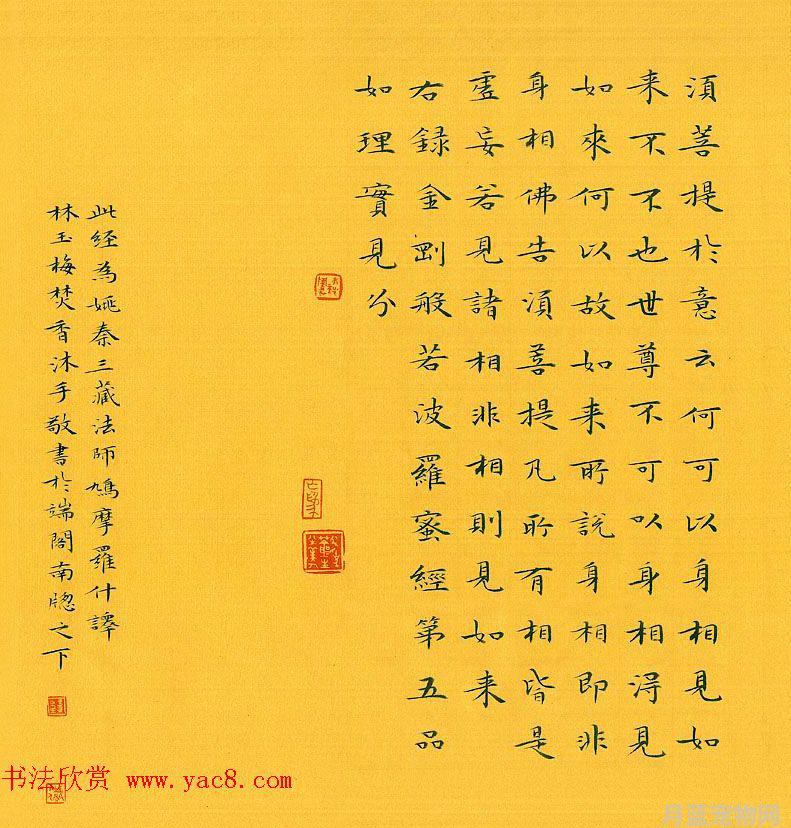 須菩提於意云何可以身相見如
来不不也世尊不可以身相得見
如來何以故如来所説身相即非
身相佛告須菩提凡所有相皆是
虛妄若見諸相非相則見如来
右録金剛般若波羅蜜經第五品
如理實見分
此経為姚秦三藏法師鳩摩羅什譯
林玉梅焚香沐手敬書於端閣南牕之下
书法欣赏 www.yac8.com
月蓝宠物网